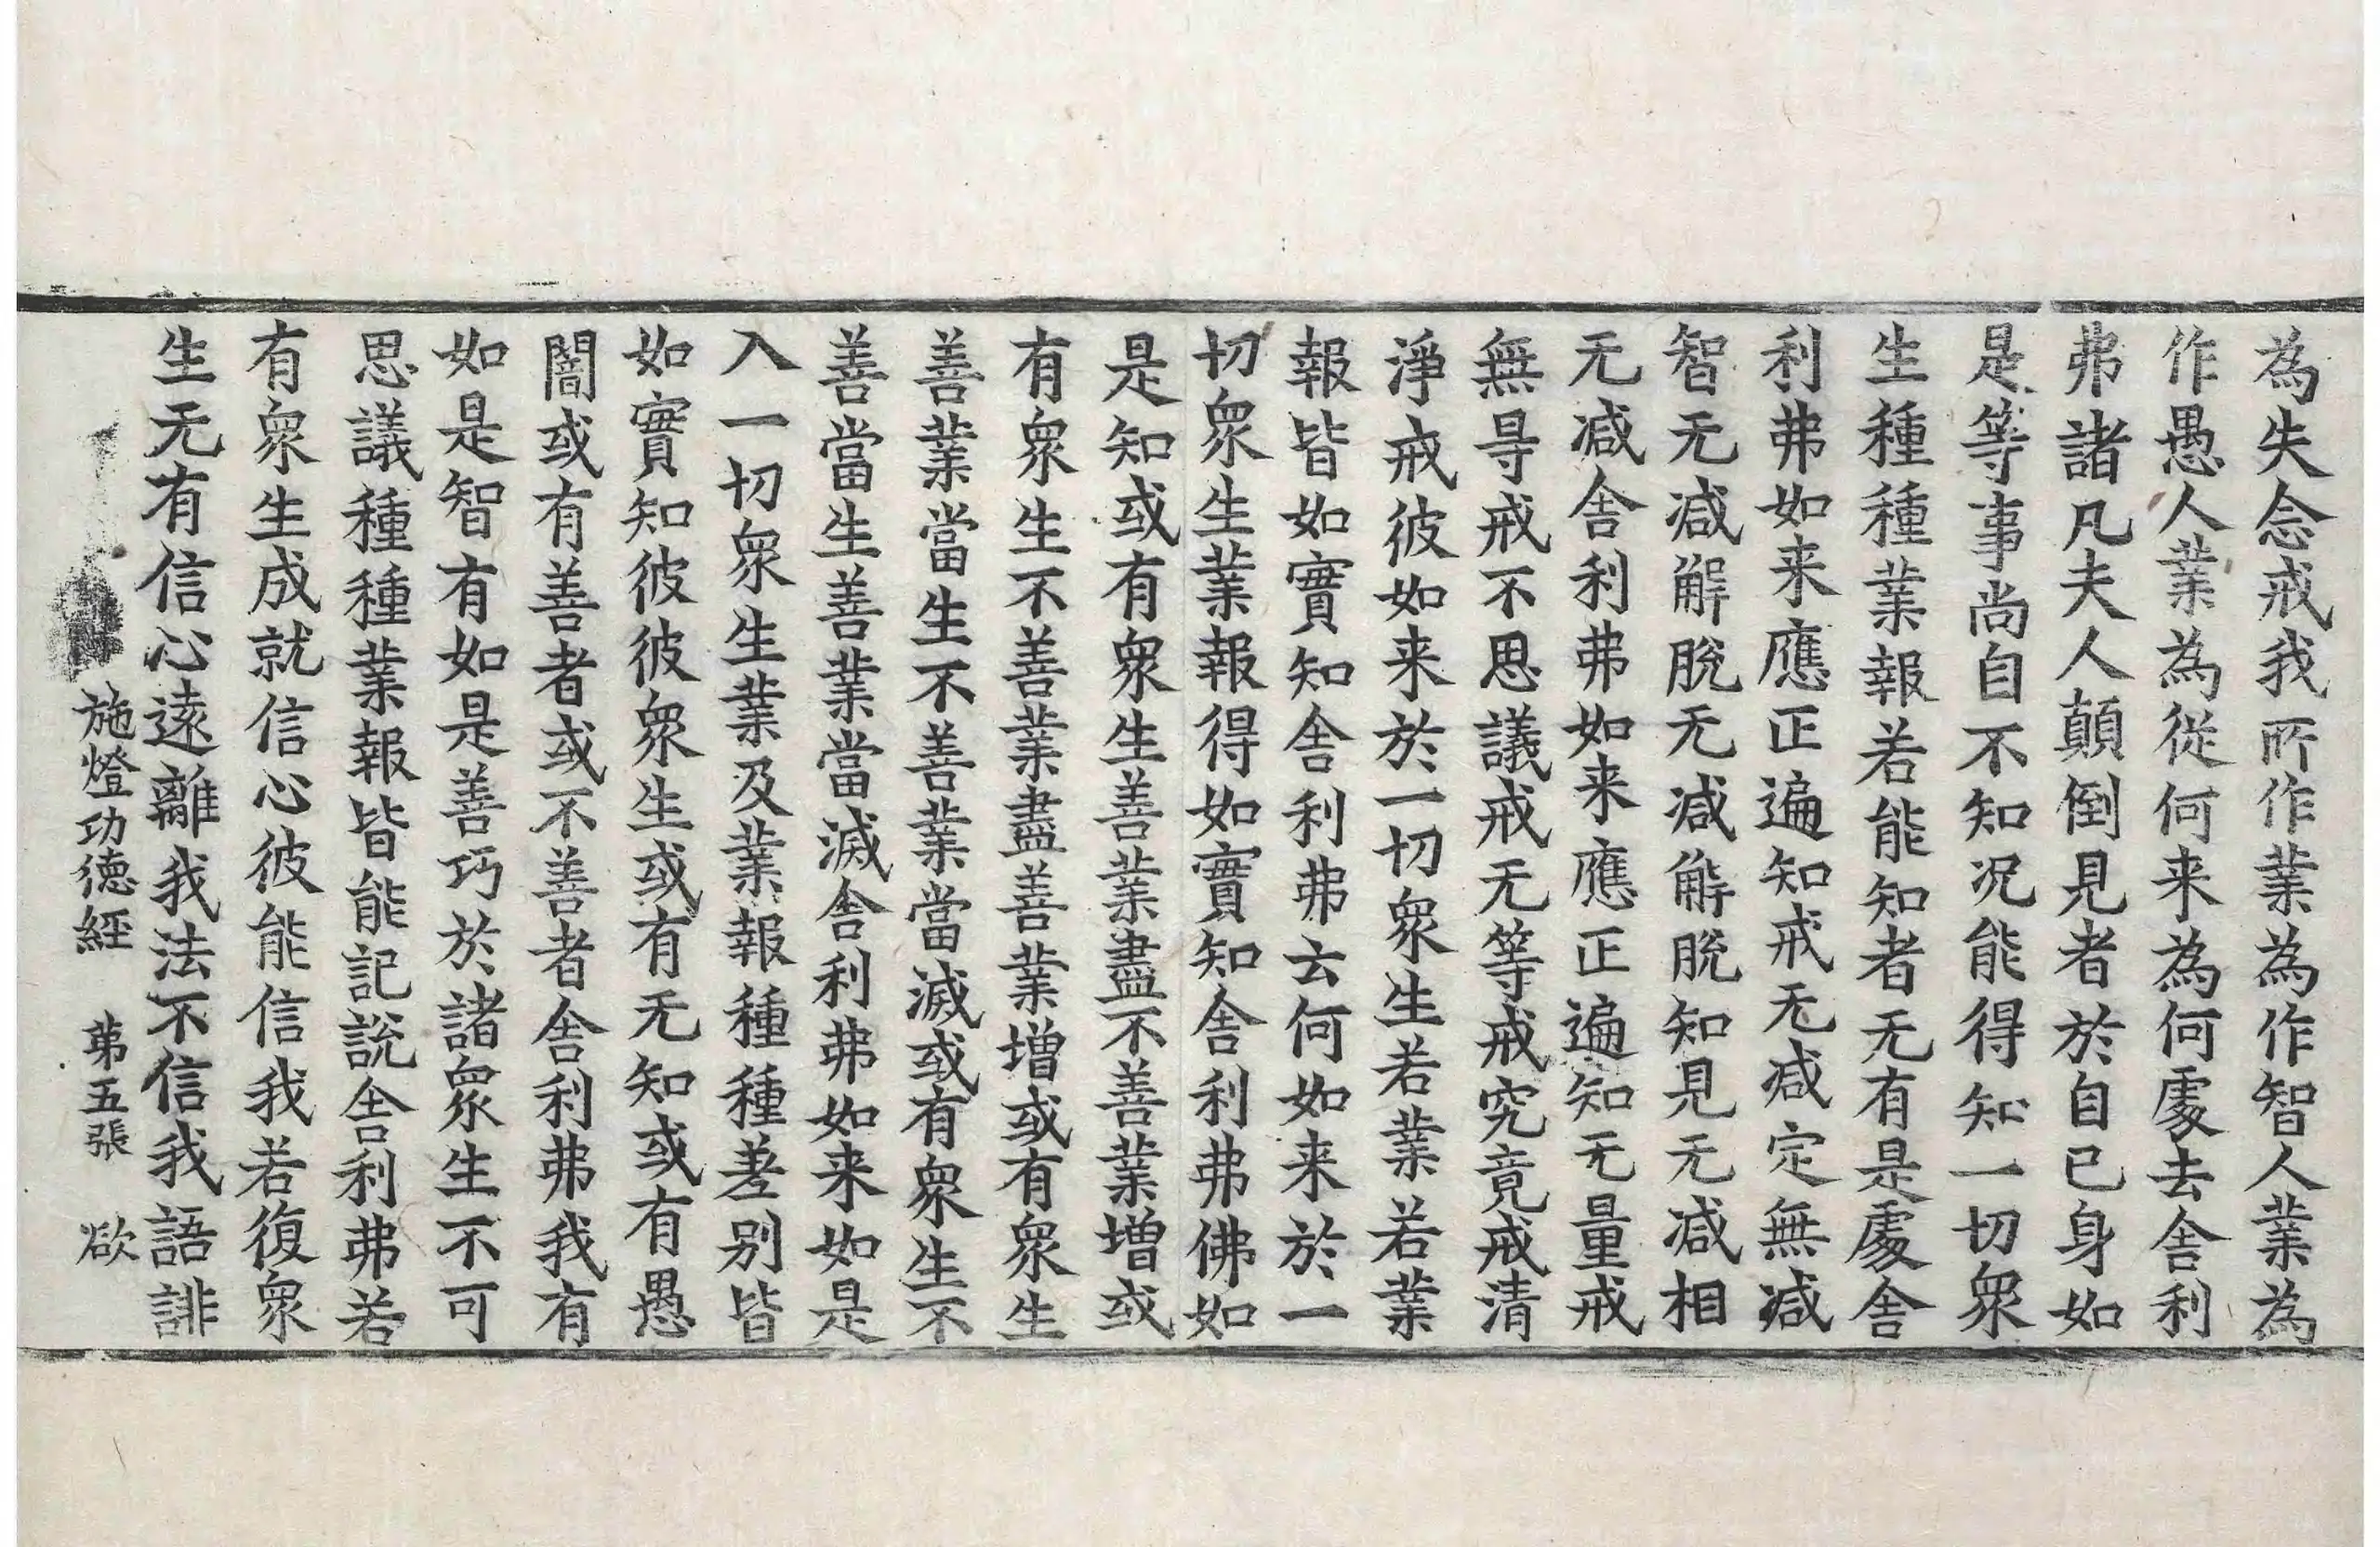 為失念戒我所作業為作智人業為
作愚人業為從何来為何處去舎利
弗諸凡夫人顛倒見者於自己身如
是等事尚自不知况能得知一切衆
生種種業報若能知者无有是處舎
利弗如来應正遍知戒无减定無减
智无减解脫无减解脫知見无减相
无减舎利弗如来應正遍知无量戒
無㝵戒不思議戒无等戒究竟戒清
淨戒彼如来於一切衆生若業若業
報皆如實知舎利弗云何如来於一
切衆生業報得如實知舎利弗佛如
是知或有衆生善業盡不善業增或
有衆生不善業盡善業增或有衆生
善業當生不善業當滅或有衆生不
善當生善業當滅舎利弗如来如是
入一切衆生業及業報種種差别皆
如實知彼彼衆生或有无知或有愚
闇或有善者或不善者舎利弗我有
如是智有如是善巧於諸衆生不可
思議種種業報皆能記說舎利弗若
有衆生成就信心彼能信我若復衆
生无有信心遠離我法不信我語誹
施燈功德經 苐五張 欲